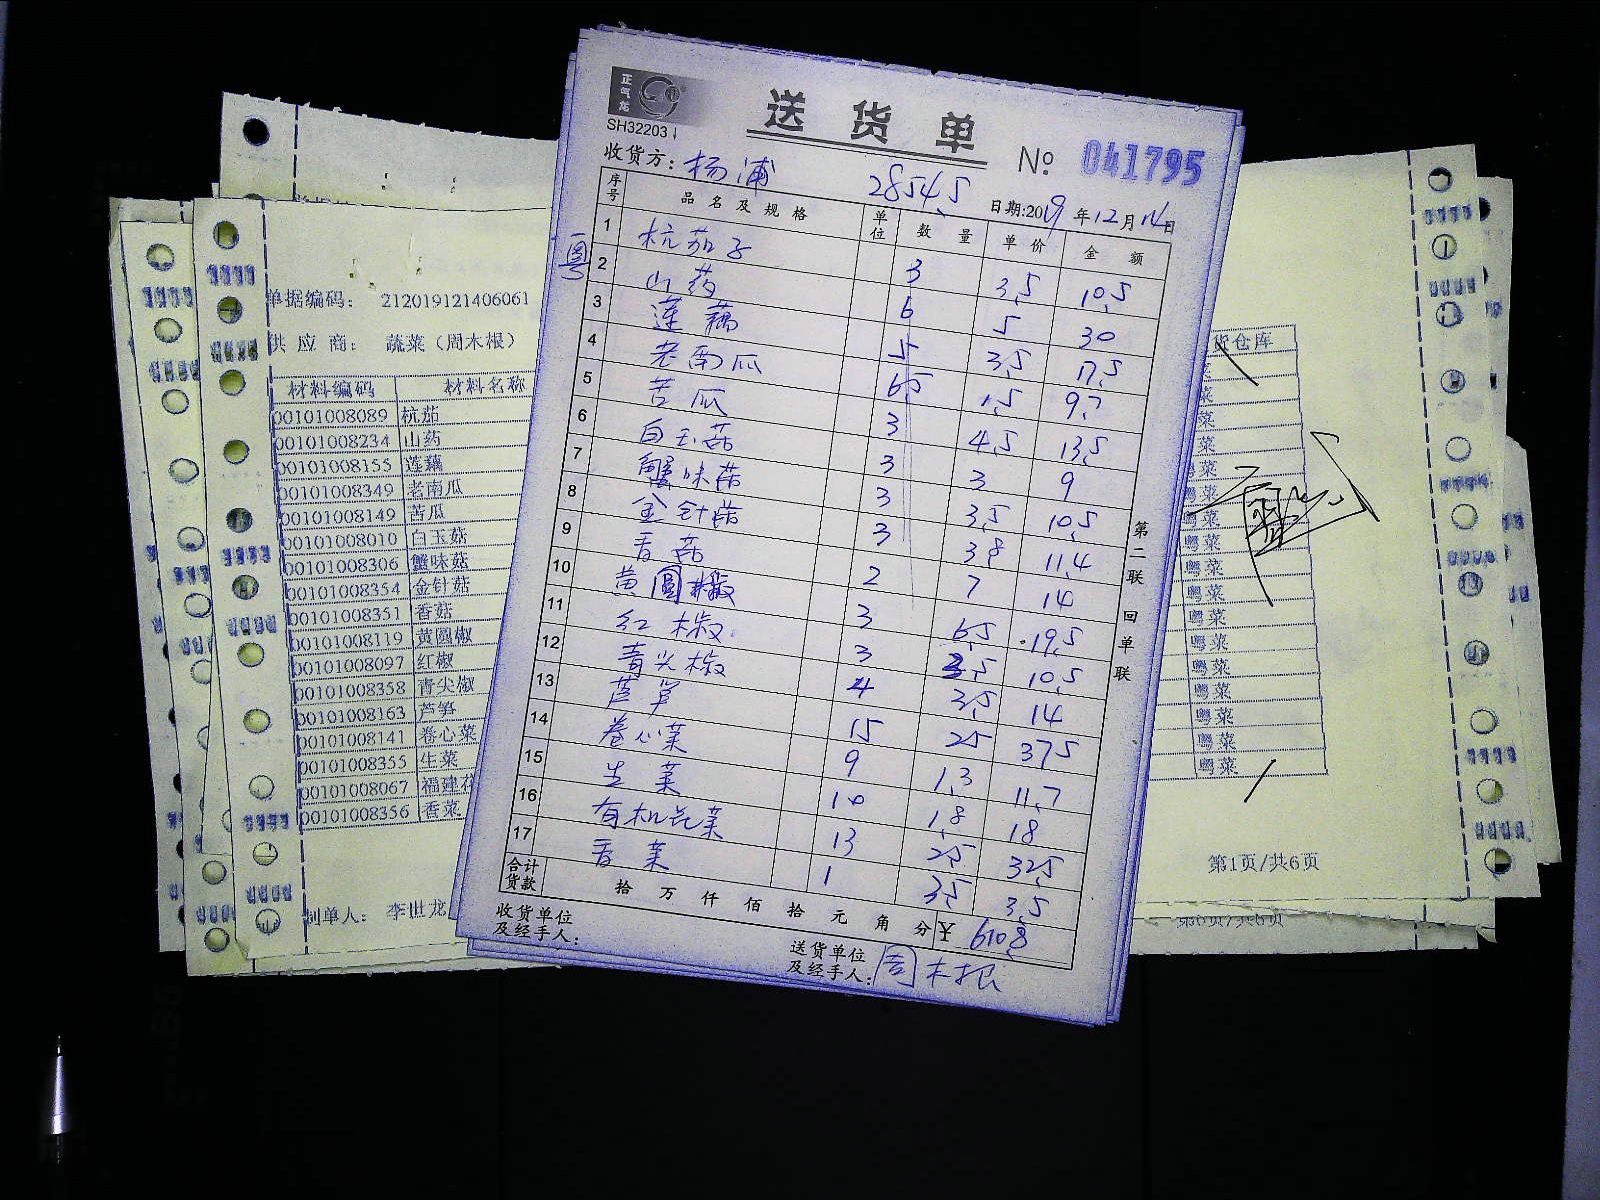 正气龙
SH32203
送货单
№ 041795
收货方：杨浦
2854.5
日期:2019年12月14日
粤
序号 品名及规格 单位 数量 单价 金额
1 杭茄子 3 3.5 10.5
2 山药 6 5 30
3 莲藕 5 3.5 17.5
4 老南瓜 6.5 1.5 9.7
5 苦瓜 3 4.5 13.5
6 白玉菇 3 3 9
7 蟹味菇 3 3.5 10.5
8 金针菇 3 3.8 11.4
9 香菇 2 7 14
10 黄圆椒 3 6.5 19.5
11 红椒 3 3.5 10.5
12 青尖椒 4 3.5 14
13 芦笋 15 25 375
14 卷心菜 9 1.3 11.7
15 生菜 10 1.8 18
16 有机花菜 13 2.5 32.5
17 香菜 1 3.5 3.5
合计货款 拾 万 仟 佰 拾 元 角 分 ¥ 610.8
收货单位及经手人：
送货单位及经手人：周木根
第二联 回单联
单据编码： 212019121406061
供应商： 蔬菜（周木根）
材料编码 材料名称
00101008089 杭茄
00101008234 山药
00101008155 莲藕
00101008349 老南瓜
00101008149 苦瓜
00101008010 白玉菇
00101008306 蟹味菇
00101008354 金针菇
00101008351 香菇
00101008119 黄圆椒
00101008097 红椒
00101008358 青尖椒
00101008163 芦笋
00101008141 卷心菜
00101008355 生菜
00101008067 福建
00101008356 香菜
制单人： 李世龙
货仓库
菜
菜
菜
菜
粤菜
粤菜
粤菜
粤菜
粤菜
粤菜
粤菜
粤菜
粤菜
粤菜
粤菜
粤菜
粤菜
第1页/共6页
第6页/共6页